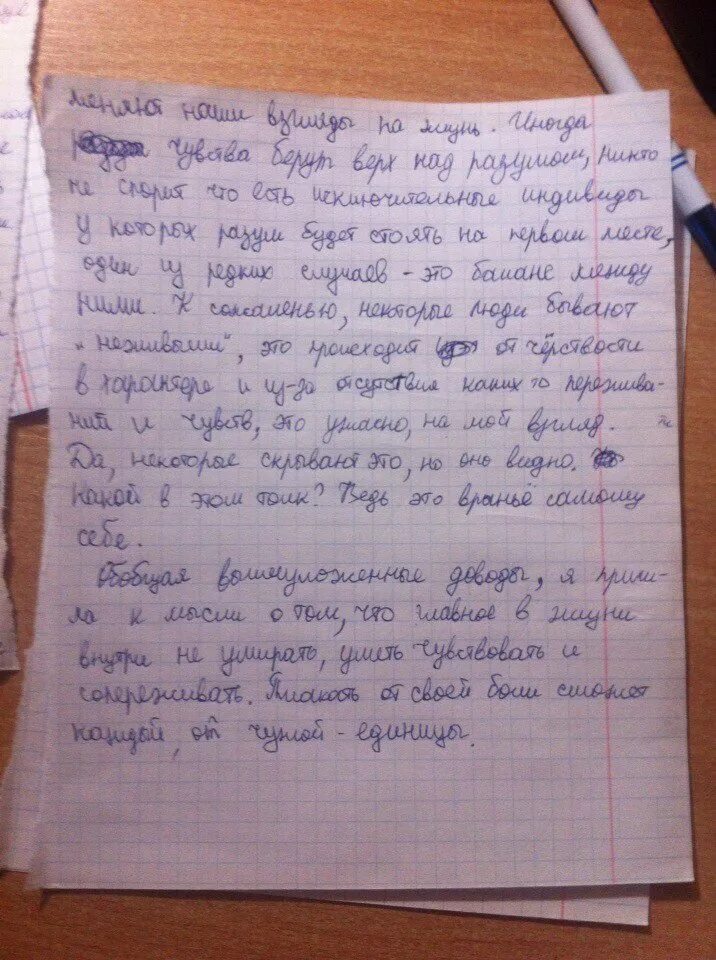 меняют наши взгляды на жизнь. Иногда
чувства берут верх над разумом, никто
не спорит что есть исключительные индивиды
у которых разум будет стоять на первом месте,
один из редких случаев - это баланс между
ними. К сожаленью, некоторые люди бывают
"неживыми", это происходит от чёрствости
в характере и из-за отсутствия каких то пережива-
ний и чувств, это ужасно, на мой взгляд.
Да, некоторые скрывают это, но оно видно.
Какой в этом толк? Ведь это враньё самому
себе.
Обобщая вышеуложенные доводы, я приш-
ла к мысли о том, что главное в жизни
внутри не умирать, уметь чувствовать и
сопереживать. Плакать от своей боли сможет
каждый, от чужой - единицы.